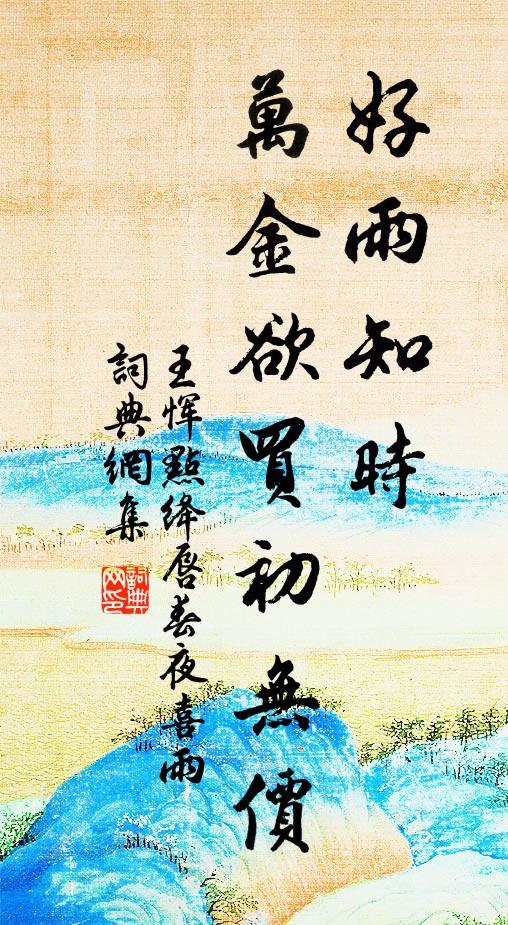 好雨知時
萬金欲買初無價
王惲點絳唇春夜喜雨
詞典網集
詞典網印